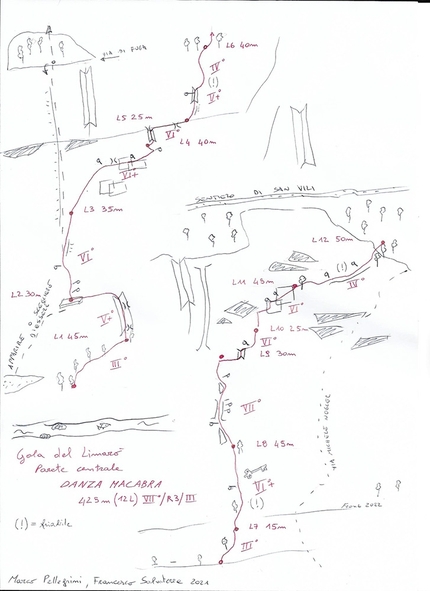 VIA DI FUGA
L6 40m
IV°
(!)
V+
L5 25m
VI°
L4 40m
VI+
L3 35m
VI°
SENTIERO DI SAN VILI
L12 50m
(!)
IV°
L11 45m
VI
L10 25m
VI°
L9 30m
L2 30m
V+
L1 45m
III°
VII°
L8 45m
VI+
(!)
L7 15m
III°
Gola del Limarò
Parete centrale
DANZA MACABRA
425m (12L) VII°/R3/III
(!) = friabile
Marco Pellegrini, Francesco Salvaterra 2021